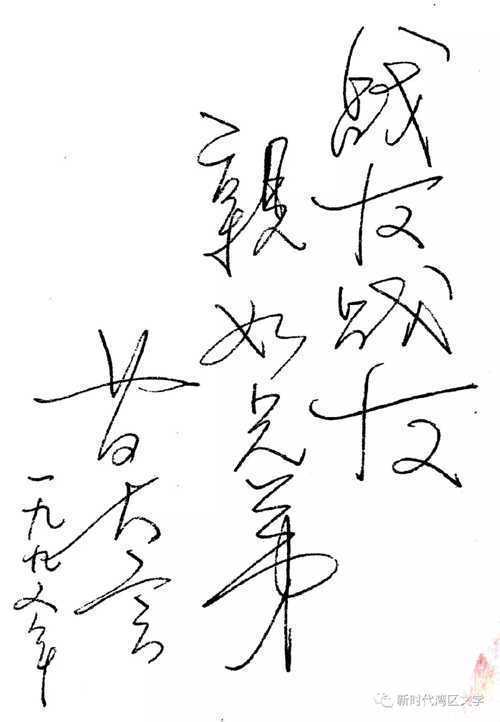 战友战友
親如兄弟
一九九八年
新时代湾区文学